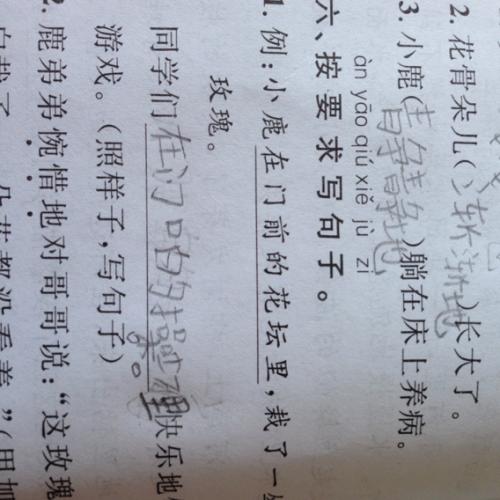 2. 花骨朵儿(渐渐地)长大了。
3. 小鹿(静静地)躺在床上养病。
àn yāo qiú xiě jù zi
六、按要求写句子。
1. 例:小鹿在门前的花坛里,栽了一
玫瑰。
同学们在门口的操场里快乐地
游戏。(照样子,写句子)
2. 鹿弟弟惋惜地对哥哥说:“这玫瑰
朵花都没看着”(用加